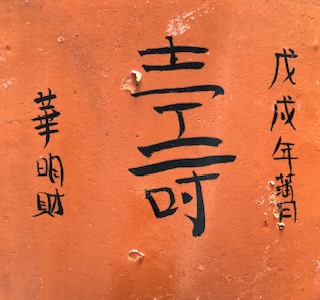 戊戌年蒲月
壽
華明財